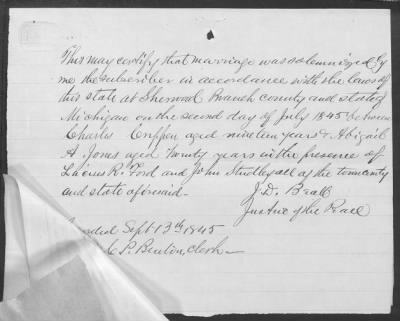 This may certify that marriage was solemnized by
me the subscriber in accordance with the laws of
this state at Sherwood Branch county and state of
Michigan on the second day of July 1845 between
Charles Crippen aged nineteen years & Abigail
A Jones aged twenty years in the presence of
R. Ford and John Studley all of the same county
and state aforesaid-
J. D. Beall
Justice of the Peace
Sept 13th 1845
C P. Benton, Clerk